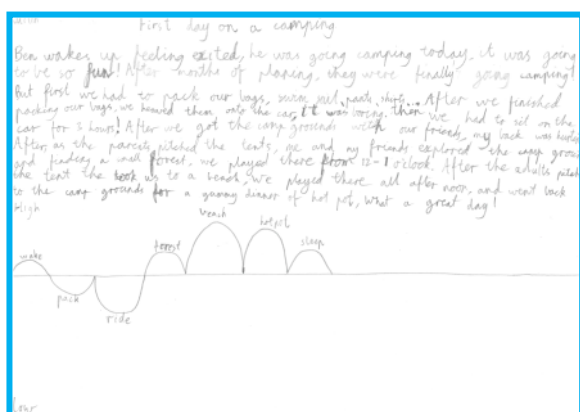 First day on a camping
Ben wakes up feeling exited, he was going camping today, it was going
to be so fun! After months of planing, they were finally going camping!
But first we had to pack our bags, swim suit, pants, shirts... After we finished
packing our bags, we heaved them onto the car, it was boring. then we had to sit on the
car for 3 hours! After we got the camp grounds with our friends, my back was
After as the parents pitched the tents, me and my friends explored the camp
and finding a small forest, we played there from 12-1 o'clock. After the adults
the tent the took us to a beach, we played there all after noon, and went back
to the camp grounds for a yummy dinner of hot pot, what a great day!
High
wake
pack
ride
forest
beach
hotpot
sleep
Low